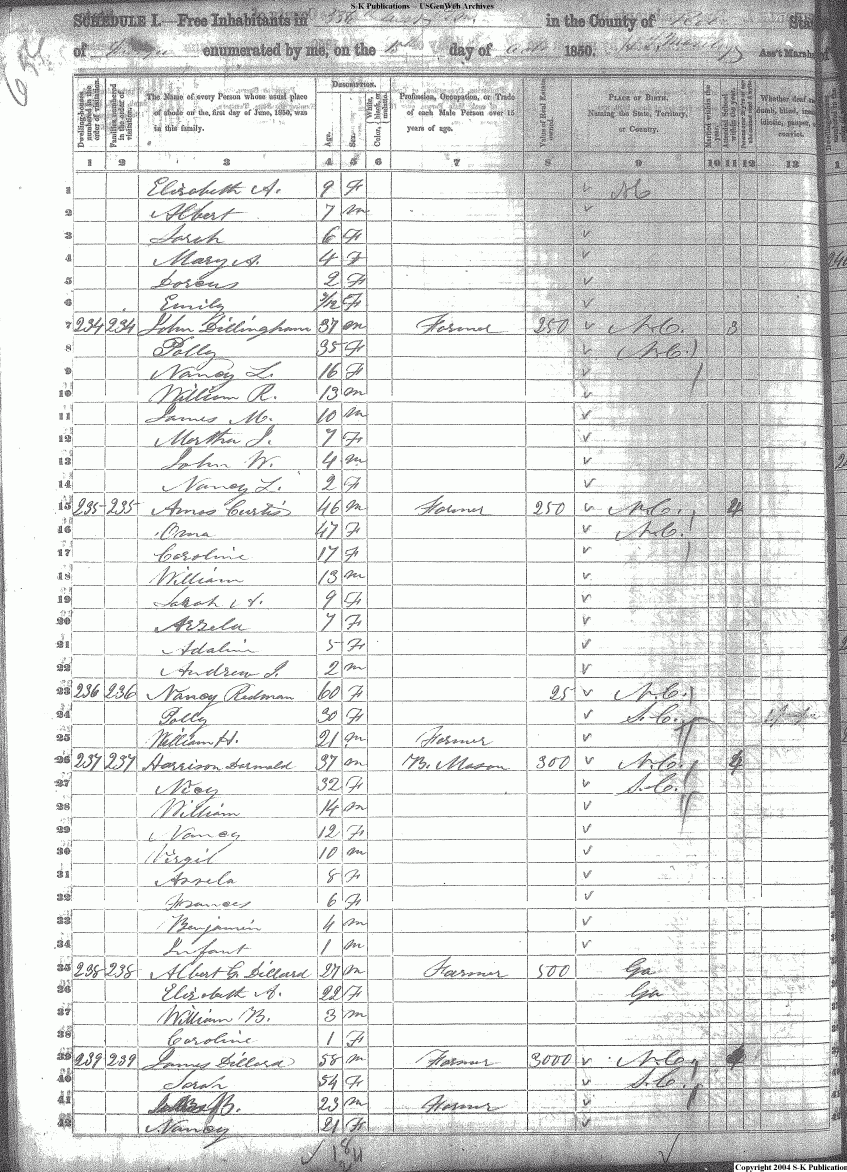 S-K Publications - USGenWeb Archives
SCHEDULE I.—Free Inhabitants in in the County of State
of enumerated by me, on the day of 1850. Ass't Marshal
654
Dwelling-houses numbered in the order of visitation.
Families numbered in the order of visitation.
The Name of every Person whose usual place of abode on the first day of June, 1850, was in this family.
DESCRIPTION.
Age.
Sex.
Color, White, black, or mulatto.
Profession, Occupation, or Trade of each Male Person over 15 years of age.
Value of Real Estate owned.
PLACE OF BIRTH. Naming the State, Territory, or Country.
Married within the year.
Attended School within the year.
Whether deaf and dumb, blind,
1 2 3 4 5 6 7 8 9 10 11 12 13 1
1 Elizabeth A. 9 F
2 Albert 7 m
3 Sarah 6 F
4 Mary A. 4 F
5 Dorcus 2 F
6 Emily /12 F
7 234 234 John Dillingham 37 m Farmer 250 N.C. 3
8 Polly 35 F N.C.
9 Nancy L. 16 F
10 William R. 13 m
11 James M. 10 m
12 Martha J. 7 F
13 John W. 4 m
14 Nancy L. 2 F
15 235 235 Amos Curtis 46 m Farmer 250 N.C. 4
16 Oma 47 F N.C.
17 Caroline 17 F
18 William 13 m
19 Sarah A. 9 F
20 Arzela 7 F
21 Adaline 5 F
22 Andrew J. 2 m
23 236 236 Nancy Redman 60 F 25 N.C.
24 Polly 30 F S.C.
25 William H. 21 m Farmer
26 237 237 Harrison Darnald 37 m B. Mason 300 N.C. 4
27 Nicy 32 F S.C.
28 William 14 m
29 Nancy 12 F
30 Virgil 10 m
31 Arzela 8 F
32 Frances 6 F
33 Benjamin 4 m
34 Infant 1 m
35 238 238 Albert G. Dillard 27 m Farmer 500 Ga
36 Elizabeth A. 22 F Ga
37 William B. 3 m
38 Caroline 1 F
39 239 239 James Dillard 58 m Farmer 3000 N.C.
40 Sarah 54 F S.C.
41 B. 23 m Farmer
42 Nancy 21 F
18
Copyright 2004 S-K Publications